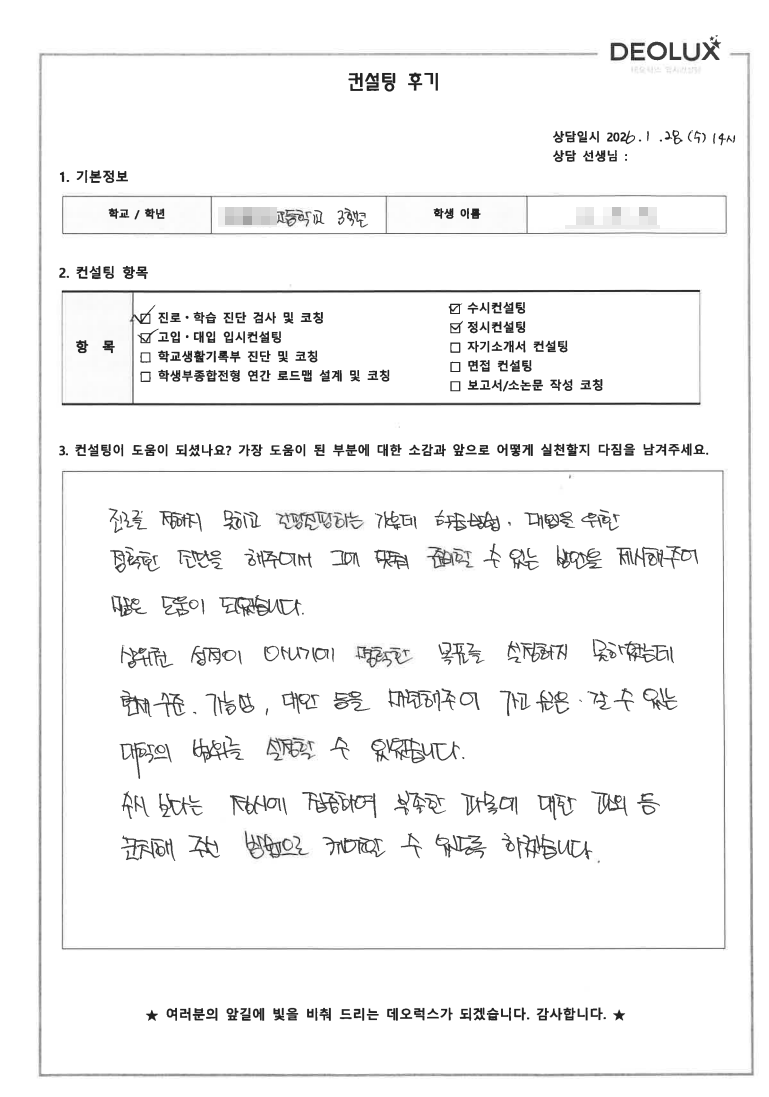 DEOLUX
컨설팅 후기
상담일시 2026.1.28.(수) 14시
상담 선생님 :
1. 기본정보
학교 / 학년 고등학교 3학년 학생 이름
2. 컨설팅 항목
항 목
진로·학습 진단 검사 및 코칭
고입·대입 입시컨설팅
학교생활기록부 진단 및 코칭
학생부종합전형 연간 로드맵 설계 및 코칭
수시컨설팅
정시컨설팅
자기소개서 컨설팅
면접 컨설팅
보고서/소논문 작성 코칭
3. 컨설팅이 도움이 되셨나요? 가장 도움이 된 부분에 대한 소감과 앞으로 어떻게 실천할지 다짐을 남겨주세요.
진로를 정하지 못하고 가운데 학습방법. 대입을 위한
정확한 진단을 해주어서 그에 맞춰 준비할 수 있는 방안을 제시해주어
많은 도움이 되었습니다.
상위권 성적이 아니기에 명확한 목표를 설정하지 못하였는데
현재 수준. 가능성, 대안 등을 마련해주어 가고 싶은. 갈 수 있는
대학의 범위를 설정할 수 있었습니다.
수시 보다는 정시에 집중하여 부족한 과목에 대한 과외 등
해 주신 방법으로 수 있도록 하겠습니다.
★ 여러분의 앞길에 빛을 비춰 드리는 데오럭스가 되겠습니다. 감사합니다. ★